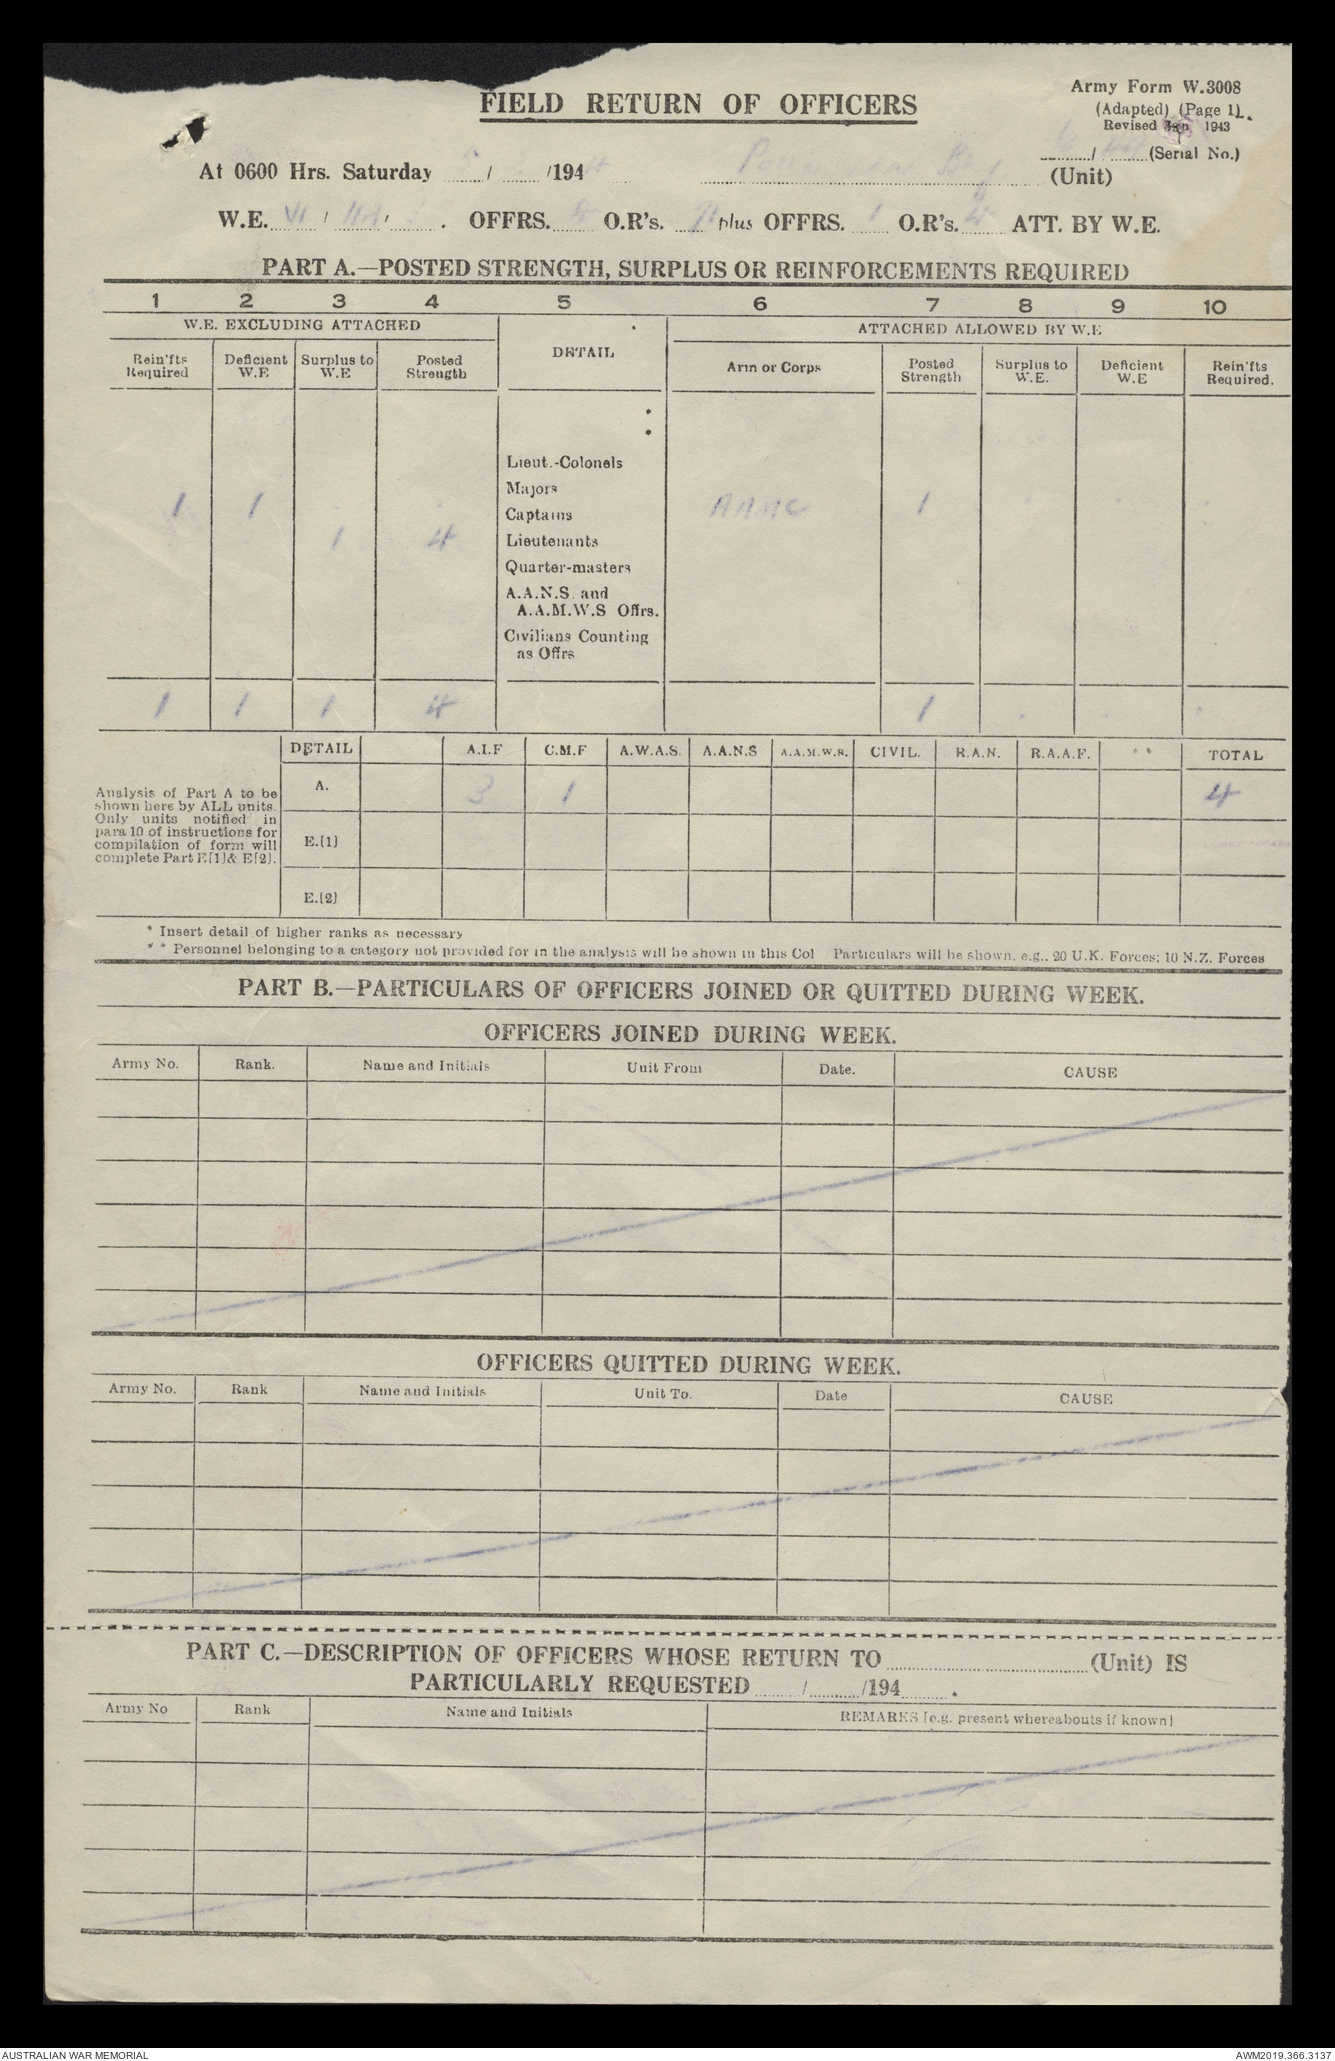 FIELD RETURN OF OFFICERS
Army Form W.3008
(Adapted) (Page 1).
Revised Jan 1943
......../........(Serial No.)
At 0600 Hrs. Saturday ....../....../194 4 (Unit)
W.E. VI / 11A / . OFFRS. 4 O.R's. plus OFFRS. 1 O.R's. 4 ATT. BY W.E.
PART A.—POSTED STRENGTH, SURPLUS OR REINFORCEMENTS REQUIRED
1 2 3 4 5 6 7 8 9 10
W.E. EXCLUDING ATTACHED
DETAIL
ATTACHED ALLOWED BY W.E
Rein'fts Required
Deficient W.E
Surplus to W.E
Posted Strength
Arm or Corps
Posted Strength
Surplus to W.E.
Deficient W.E
Rein'fts Required.
Lieut.-Colonels
Majors
1 1 . . Captains AAMC 1 . . .
1 4 Lieutenants
Quarter-masters
A.A.N.S. and
A.A.M.W.S Offrs.
Civilians Counting
as Offrs
1 1 1 4 1 . . .
DETAIL A.I.F C.M.F A.W.A.S. A.A.N.S A.A.M.W.S. CIVIL. R.A.N. R.A.A.F. ** TOTAL
Analysis of Part A to be
shown here by ALL units.
Only units notified in
para 10 of instructions for
compilation of form will
complete Part E[1]& E[2].
A. 3 1 4
E.[1]
E.[2]
* Insert detail of higher ranks as necessary
* * Personnel belonging to a category not provided for in the analysis will be shown in this Col Particulars will be shown. e.g., 20 U.K. Forces; 10 N.Z. Forces
PART B.—PARTICULARS OF OFFICERS JOINED OR QUITTED DURING WEEK.
OFFICERS JOINED DURING WEEK.
Army No. Rank. Name and Initials Unit From Date. CAUSE
OFFICERS QUITTED DURING WEEK.
Army No. Rank Name and Initials Unit To. Date CAUSE
PART C.—DESCRIPTION OF OFFICERS WHOSE RETURN TO ........................(Unit) IS
PARTICULARLY REQUESTED ......./......../194....... .
Army No Rank Name and Initials REMARKS [e.g. present whereabouts if known]
AUSTRALIAN WAR MEMORIAL
AWM2019.366.3137